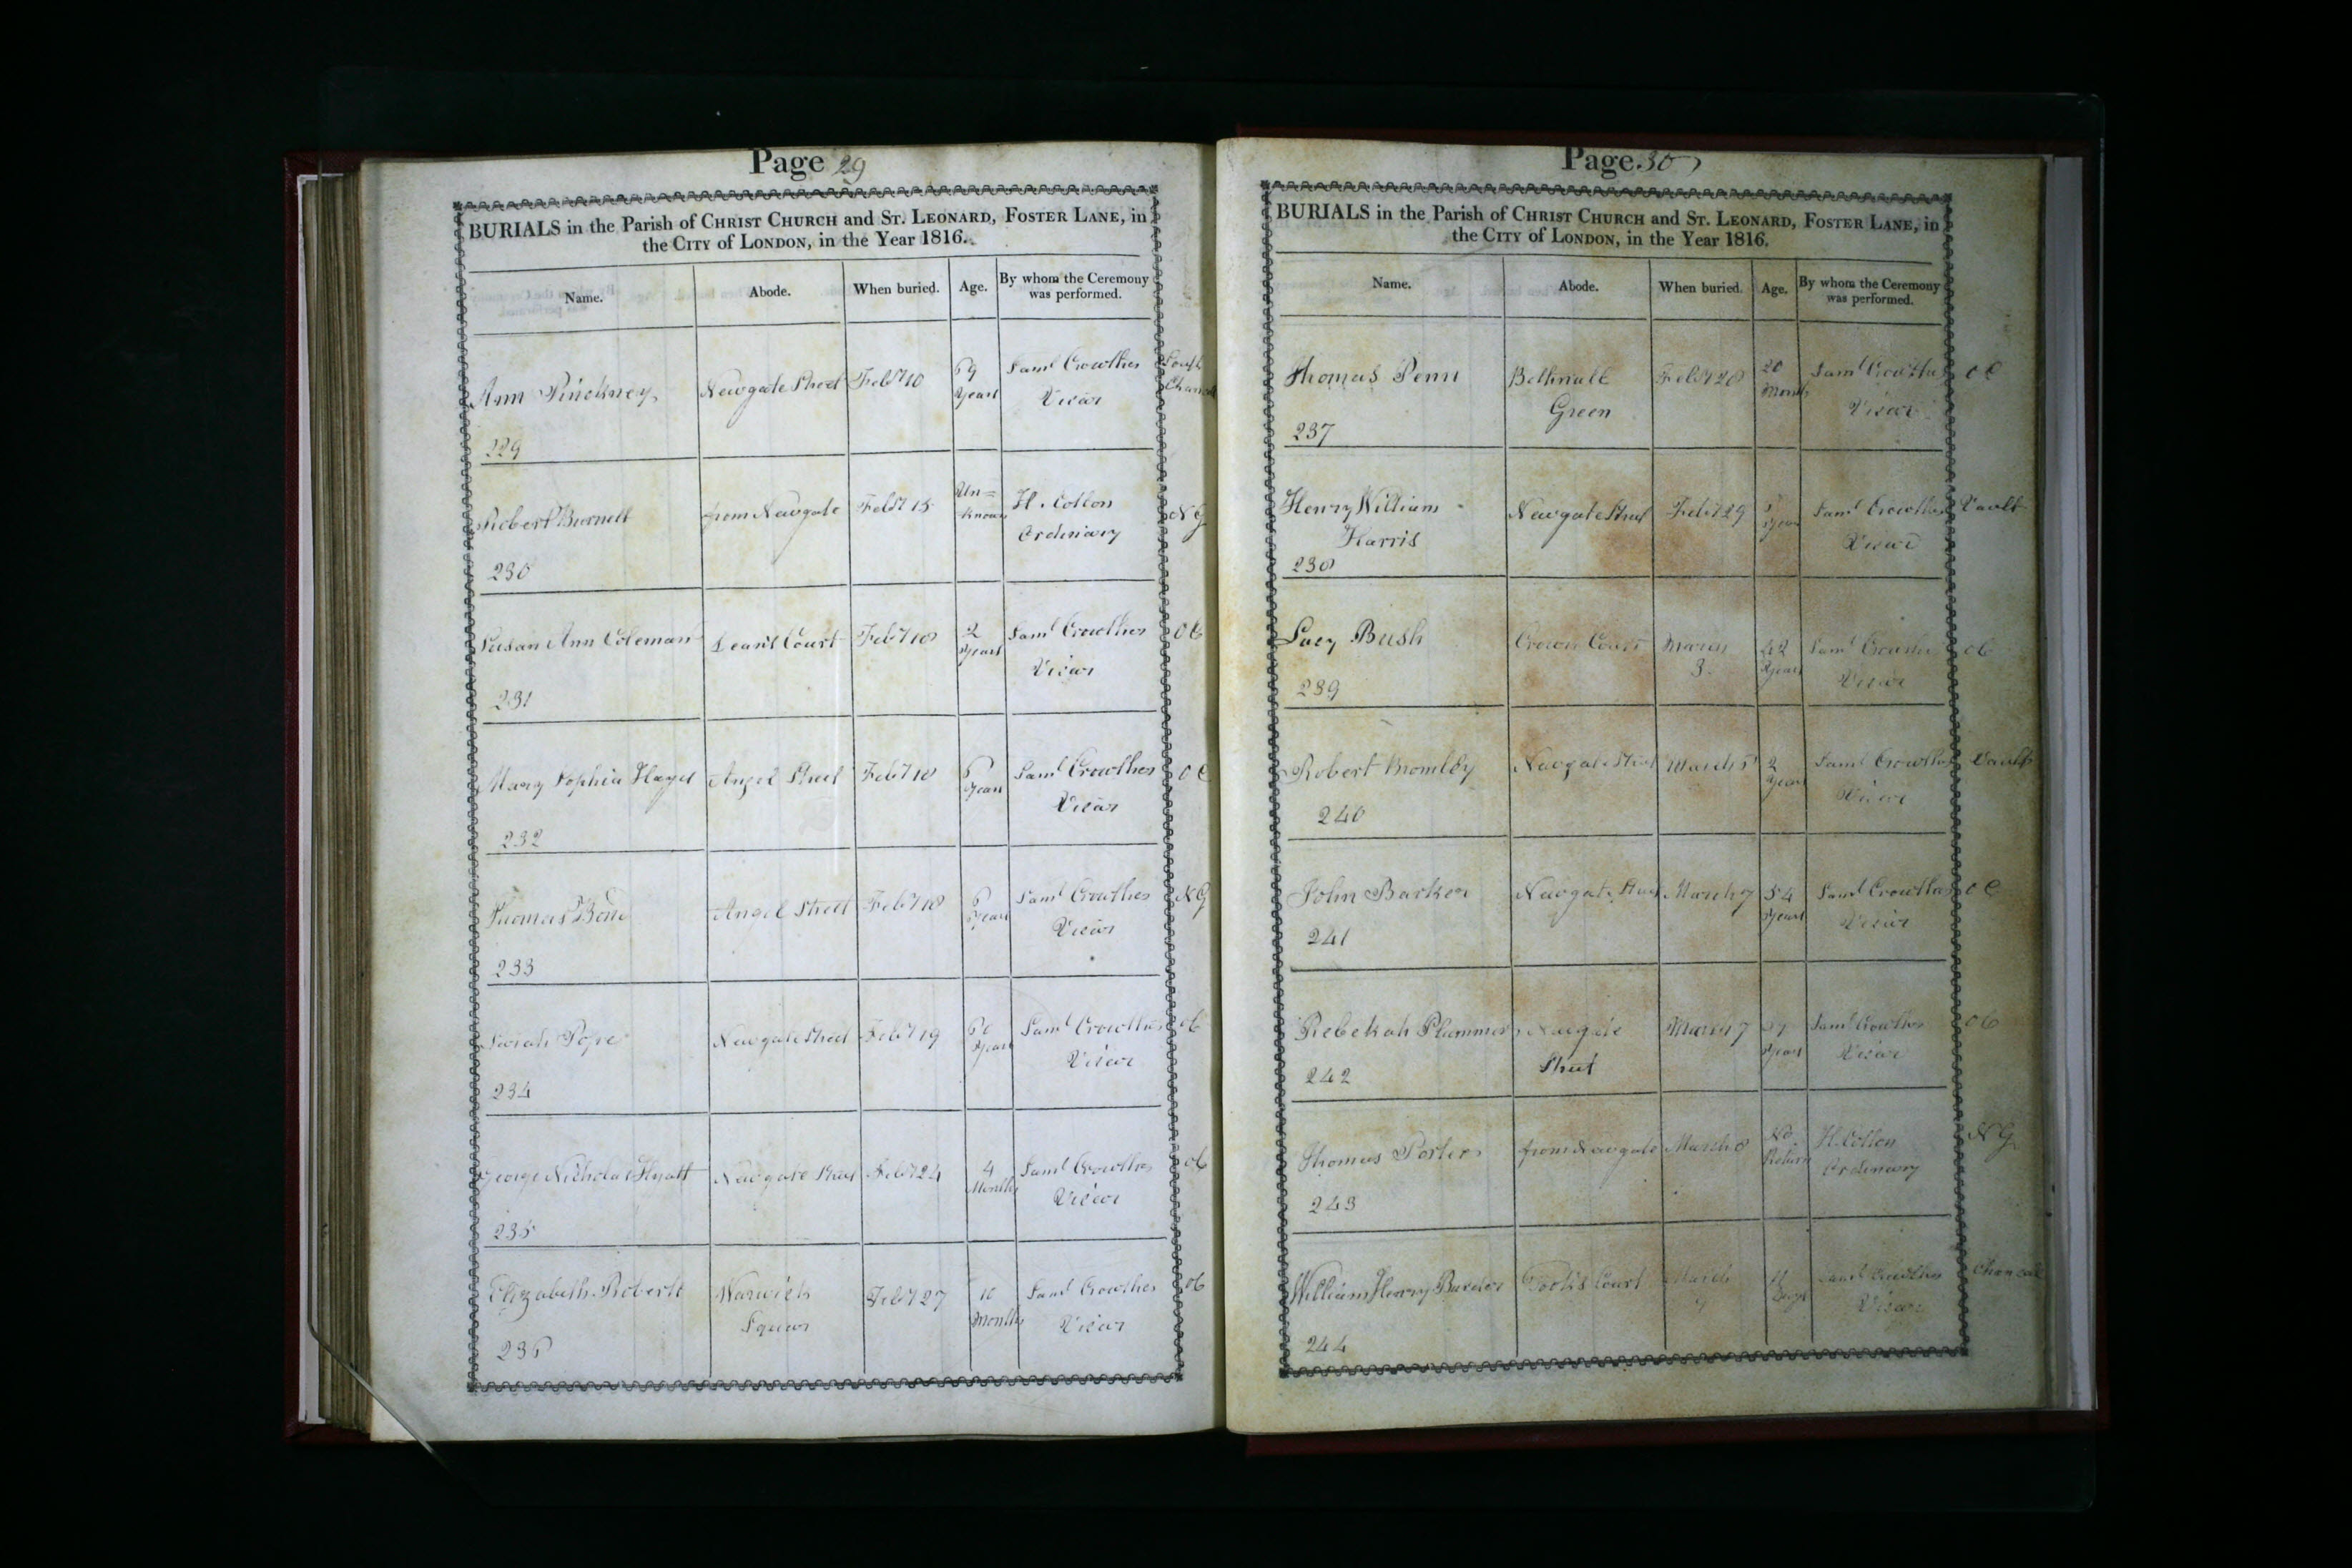 Page 29
BURIALS in the Parish of CHRIST CHURCH and ST. LEONARD, FOSTER LANE, in
the CITY of LONDON, in the Year 1816.
Name. Abode. When buried. Age. By whom the Ceremony was performed.
Ann Pinckney Newgate Street Feby 10 69 Years Saml Crowther Vicar South
229
Robert Burnell from Newgate Feby 15 Un=known H. Cotton Ordinary N G
230
Susan Ann Coleman Deans Court Feby 18 2 Years Saml Crowther Vicar
231
Mary Sophia Angel Street Feby 18 Years Saml Crowther Vicar
232
Thomas Angel Street Feby 18 Years Saml Crowther Vicar N G
233
Sarah Pope Newgate Street Feby 19 60 Years Saml Crowther Vicar
234
George Nicholas Hyatt Newgate Street Feby 24 4 Months Saml Crowther Vicar
235
Elizabeth Roberts Warwick Square Feby 27 10 Months Saml Crowther Vicar
236
Page 30
BURIALS in the Parish of CHRIST CHURCH and ST. LEONARD, FOSTER LANE, in
the CITY of LONDON, in the Year 1816.
Name. Abode. When buried. Age. By whom the Ceremony was performed.
Thomas Penn Green Feby 28 20 Months Saml Crowther Vicar
237
Henry William Harris Newgate Street Feby 29 Years Saml Crowther Vicar Vault
238
Lucy Bush Crown Court March 3. 42 Years Saml Crowther Vicar
239
Robert Bromley Newgate Street March 5 2 Years Saml Crowther Vicar Vault
240
John Barker Newgate Street March 7 54 Years Saml Crowther Vicar
241
Rebekah Plummer Newgate Street March 7 Years Saml Crowther Vicar
242
Thomas Porter from Newgate March 8 No Return H. Cotton Ordinary N G
243
William Henry Court March 9 Days Saml Crowther Vicar Chancel
244